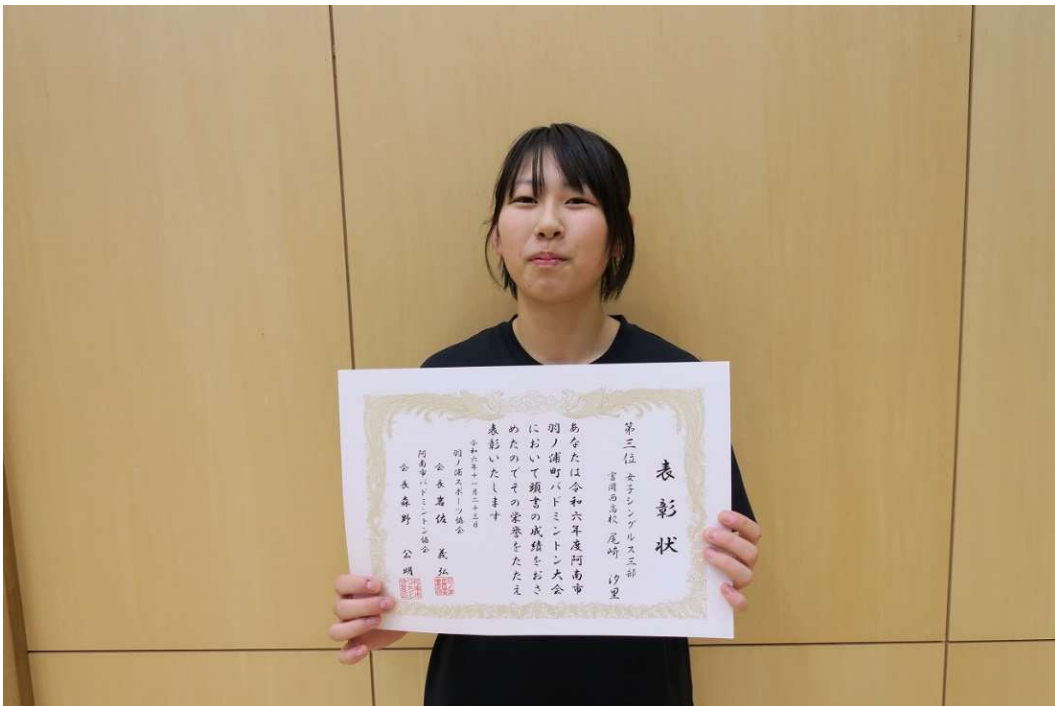 表彰状
第三位 女子シングルス三部
富岡西高校 尾崎 汐里
あなたは令和六年度阿南市
羽ノ浦町バドミントン大会
において頭書の成績をおさ
めたのでその栄誉をたたえ
表彰いたします
令和六年十一月二十三日
羽ノ浦スポーツ協会
会長 岩佐 義弘
阿南市バドミントン協会
会長 森野 公明